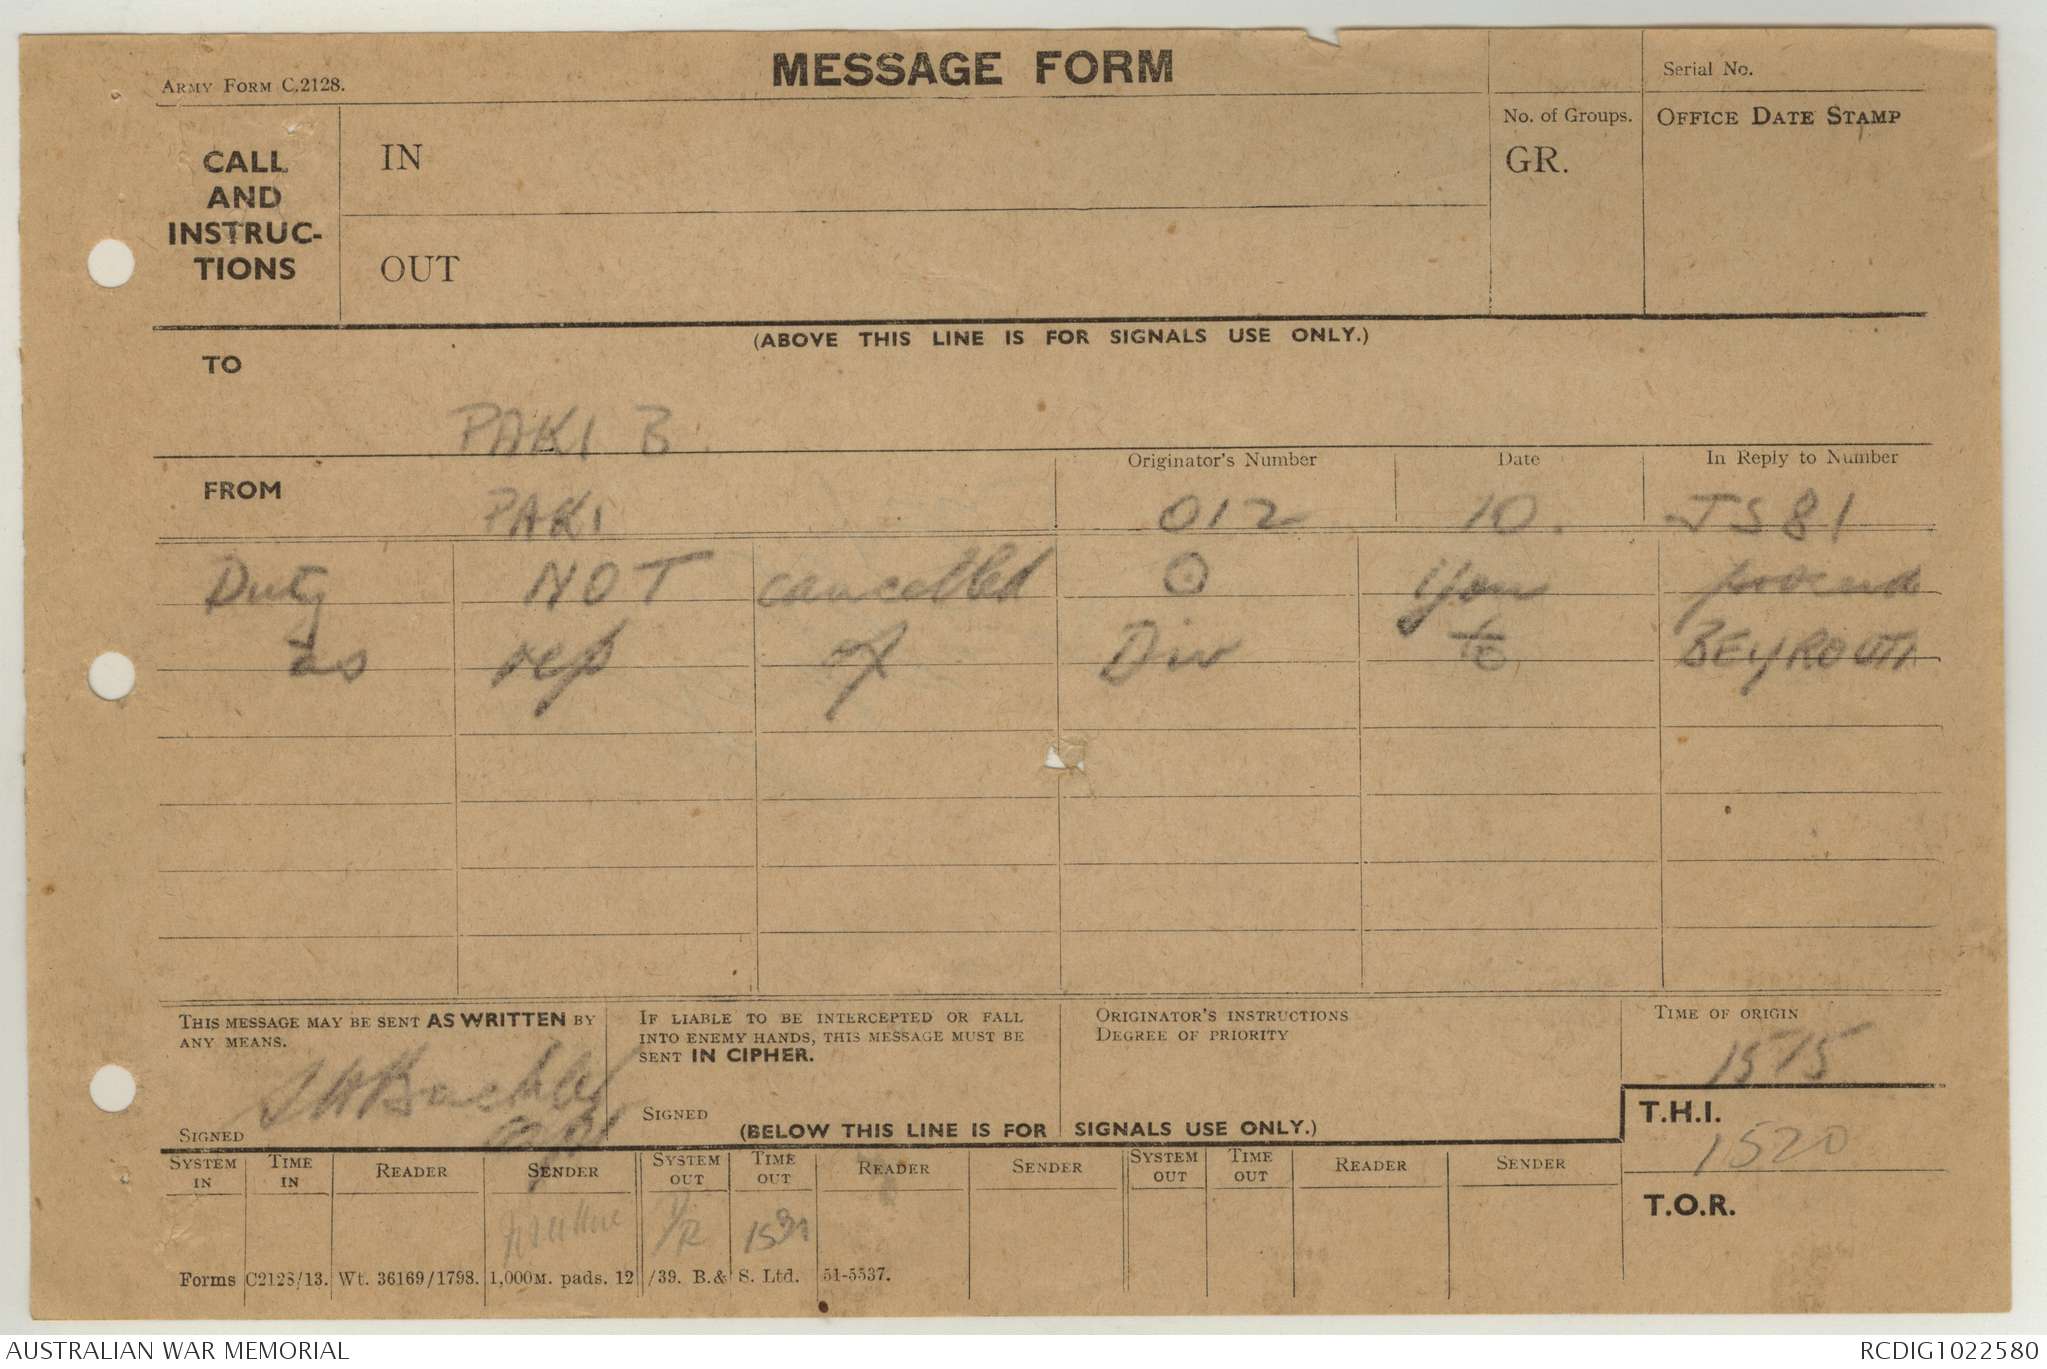 MESSAGE FORM
Army Form C.2128.
Serial No.
CALL AND INSTRUC-TIONS
IN
OUT
No. of Groups.
GR.
OFFICE DATE STAMP
(ABOVE THIS LINE IS FOR SIGNALS USE ONLY.)
TO
PAKI B.
FROM
PAKI
Originator's Number
012
Date
10.
In Reply to Number
JS81
Duty NOT cancelled You proceed
as rep of Div to BEYROUTH
THIS MESSAGE MAY BE SENT AS WRITTEN BY
ANY MEANS.
SIGNED
IF LIABLE TO BE INTERCEPTED OR FALL
INTO ENEMY HANDS, THIS MESSAGE MUST BE
SENT IN CIPHER.
SIGNED
ORIGINATOR'S INSTRUCTIONS
DEGREE OF PRIORITY
TIME OF ORIGIN
1515
(BELOW THIS LINE IS FOR SIGNALS USE ONLY.)
T.H.I.
1520
T.O.R.
SYSTEM IN
TIME IN
READER
SENDER
SYSTEM OUT
TIME OUT
READER
SENDER
SYSTEM OUT
TIME OUT
READER
SENDER
Forms C2128/13. Wt. 36169/1798. 1,000M. pads. 12/39. B.& S. Ltd. 51-5537.
AUSTRALIAN WAR MEMORIAL
RCDIG1022580